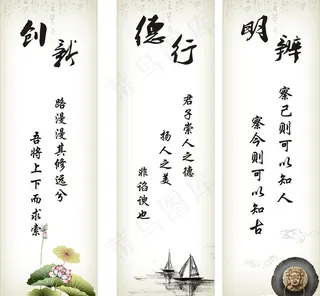 创新
路漫漫其修远兮
吾将上下而求索
德行
君子崇人之德
扬人之美
非谄谀也
明辨
察己则可以知人
察今则可以知古